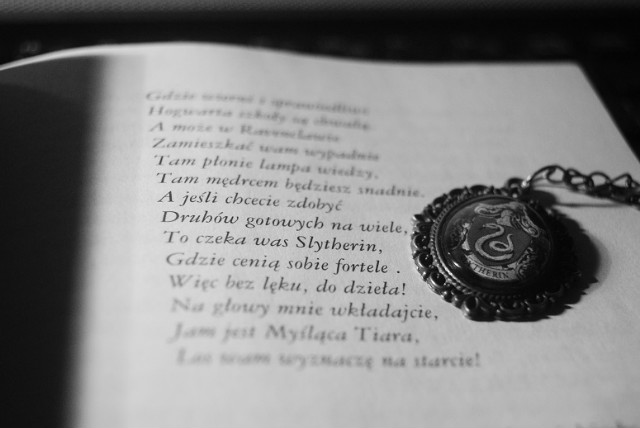 Gdzie wierni i sprawiedliwi
Hogwarta szkoły są chwałą.
A może w Ravenclawie
Zamieszkać wam wypadnie
Tam płonie lampa wiedzy,
Tam mędrcem będziesz snadnie.
A jeśli chcecie zdobyć
Druhów gotowych na wiele,
To czeka was Slytherin,
Gdzie cenią sobie fortele .
Więc bez lęku, do dzieła!
Na głowy mnie wkładajcie,
Jam jest Myśląca Tiara,
Los wam wyznaczę na starcie!
THERIN